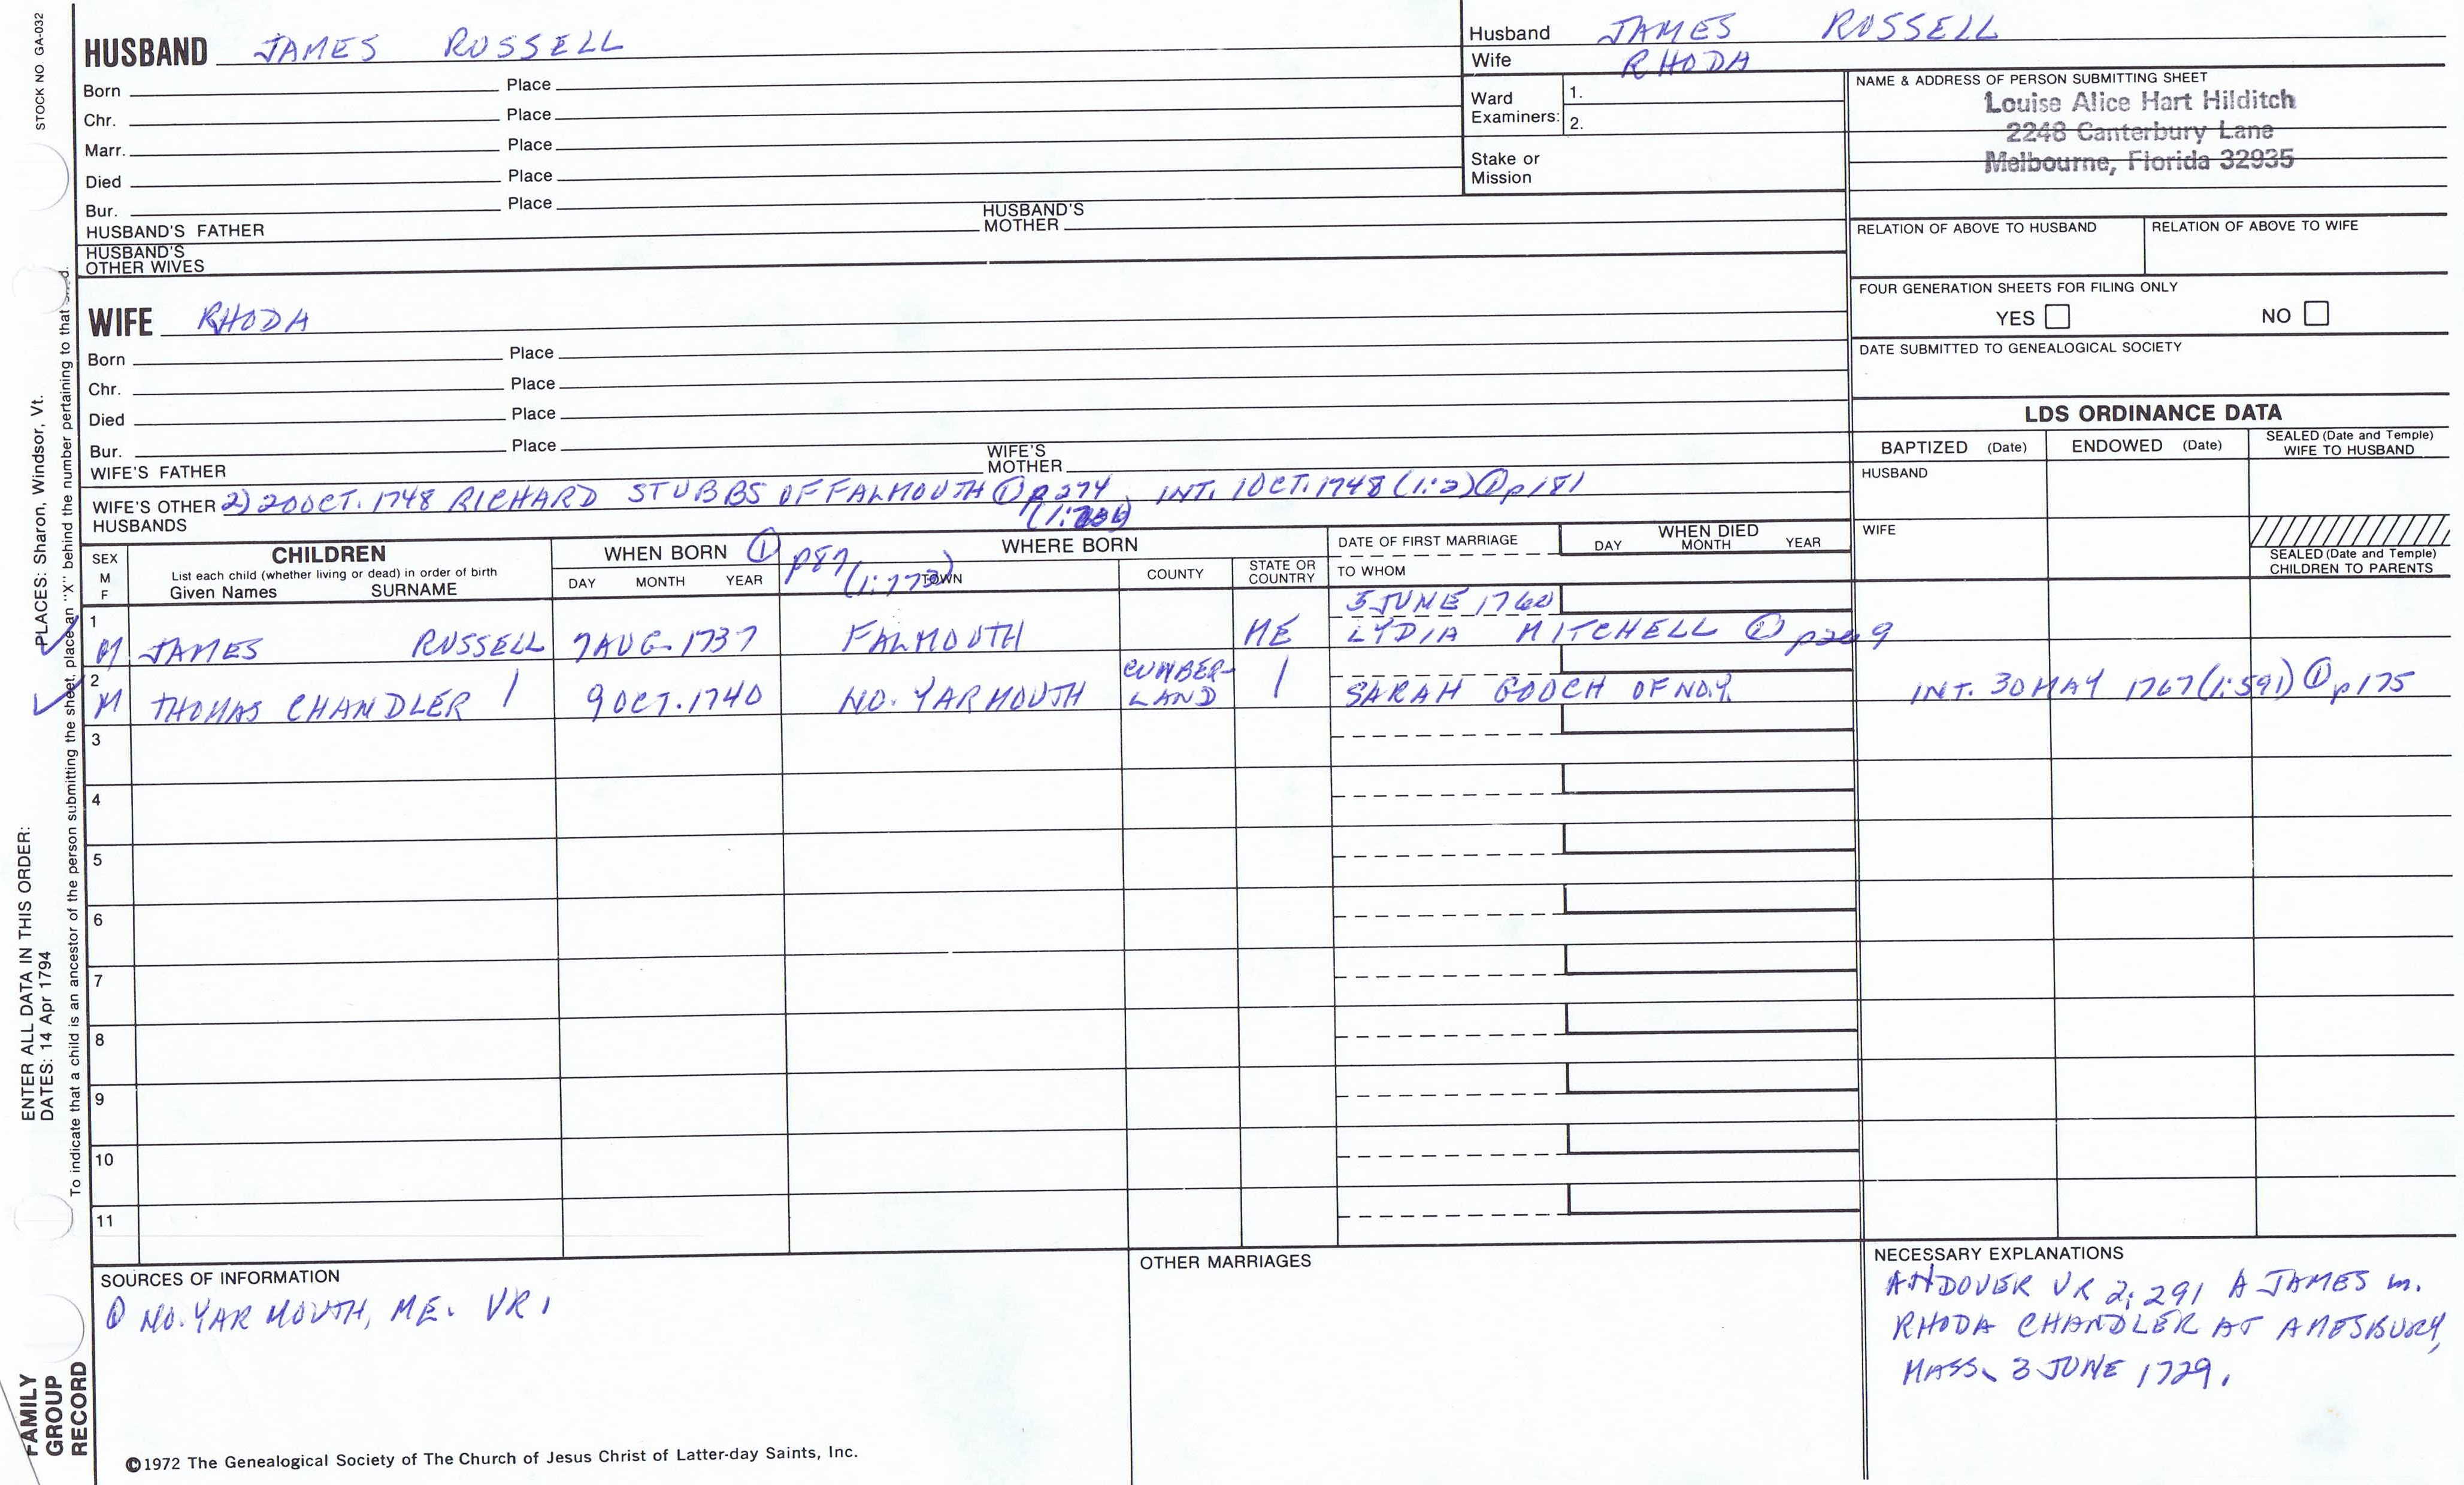 STOCK NO GA-032
HUSBAND JAMES RUSSELL
Born Place
Chr. Place
Marr. Place
Died Place
Bur. Place
HUSBAND'S FATHER HUSBAND'S MOTHER
HUSBAND'S OTHER WIVES
Husband JAMES RUSSELL
Wife RHODA
Ward Examiners: 1.
2.
Stake or Mission
NAME & ADDRESS OF PERSON SUBMITTING SHEET
Louise Alice Hart Hilditch
2248 Canterbury Lane
Melbourne, Florida 32935
RELATION OF ABOVE TO HUSBAND RELATION OF ABOVE TO WIFE
FOUR GENERATION SHEETS FOR FILING ONLY
YES NO
DATE SUBMITTED TO GENEALOGICAL SOCIETY
WIFE RHODA
Born Place
Chr. Place
Died Place
Bur. Place
WIFE'S FATHER WIFE'S MOTHER
WIFE'S OTHER HUSBANDS 2) 20 OCT. 1748 RICHARD STUBBS OF FALMOUTH ① p 274, INT. 1 OCT. 1748 (1:2) ① p 181
LDS ORDINANCE DATA
BAPTIZED (Date) ENDOWED (Date) SEALED (Date and Temple) WIFE TO HUSBAND
HUSBAND
WIFE
SEALED (Date and Temple) CHILDREN TO PARENTS
SEX M F
CHILDREN
List each child (whether living or dead) in order of birth
Given Names SURNAME
WHEN BORN ① p 87 (1:173) WHERE BORN
DAY MONTH YEAR TOWN COUNTY STATE OR COUNTRY
DATE OF FIRST MARRIAGE
TO WHOM
WHEN DIED
DAY MONTH YEAR
5 JUNE 1760
1 M JAMES RUSSELL 7 AUG. 1737 FALMOUTH ME LYDIA MITCHELL ①
2 M THOMAS CHANDLER 9 OCT. 1740 NO. YARMOUTH CUMBER-LAND SARAH GOOCH OF NO.Y. INT. 30 MAY 1767 (1:591) ① p 175
3
4
5
6
7
8
9
10
11
SOURCES OF INFORMATION
① NO. YARMOUTH, ME. VR.
OTHER MARRIAGES
NECESSARY EXPLANATIONS
ANDOVER VR 2:291 A JAMES m.
RHODA CHANDLER AT AMESBURY,
MASS. 3 JUNE 1729.
©1972 The Genealogical Society of The Church of Jesus Christ of Latter-day Saints, Inc.
FAMILY GROUP RECORD
ENTER ALL DATA IN THIS ORDER:
DATES: 14 Apr 1794
PLACES: Sharon, Windsor, Vt.
To indicate that a child is an ancestor of the person submitting the sheet, place an "X" behind the number pertaining to that